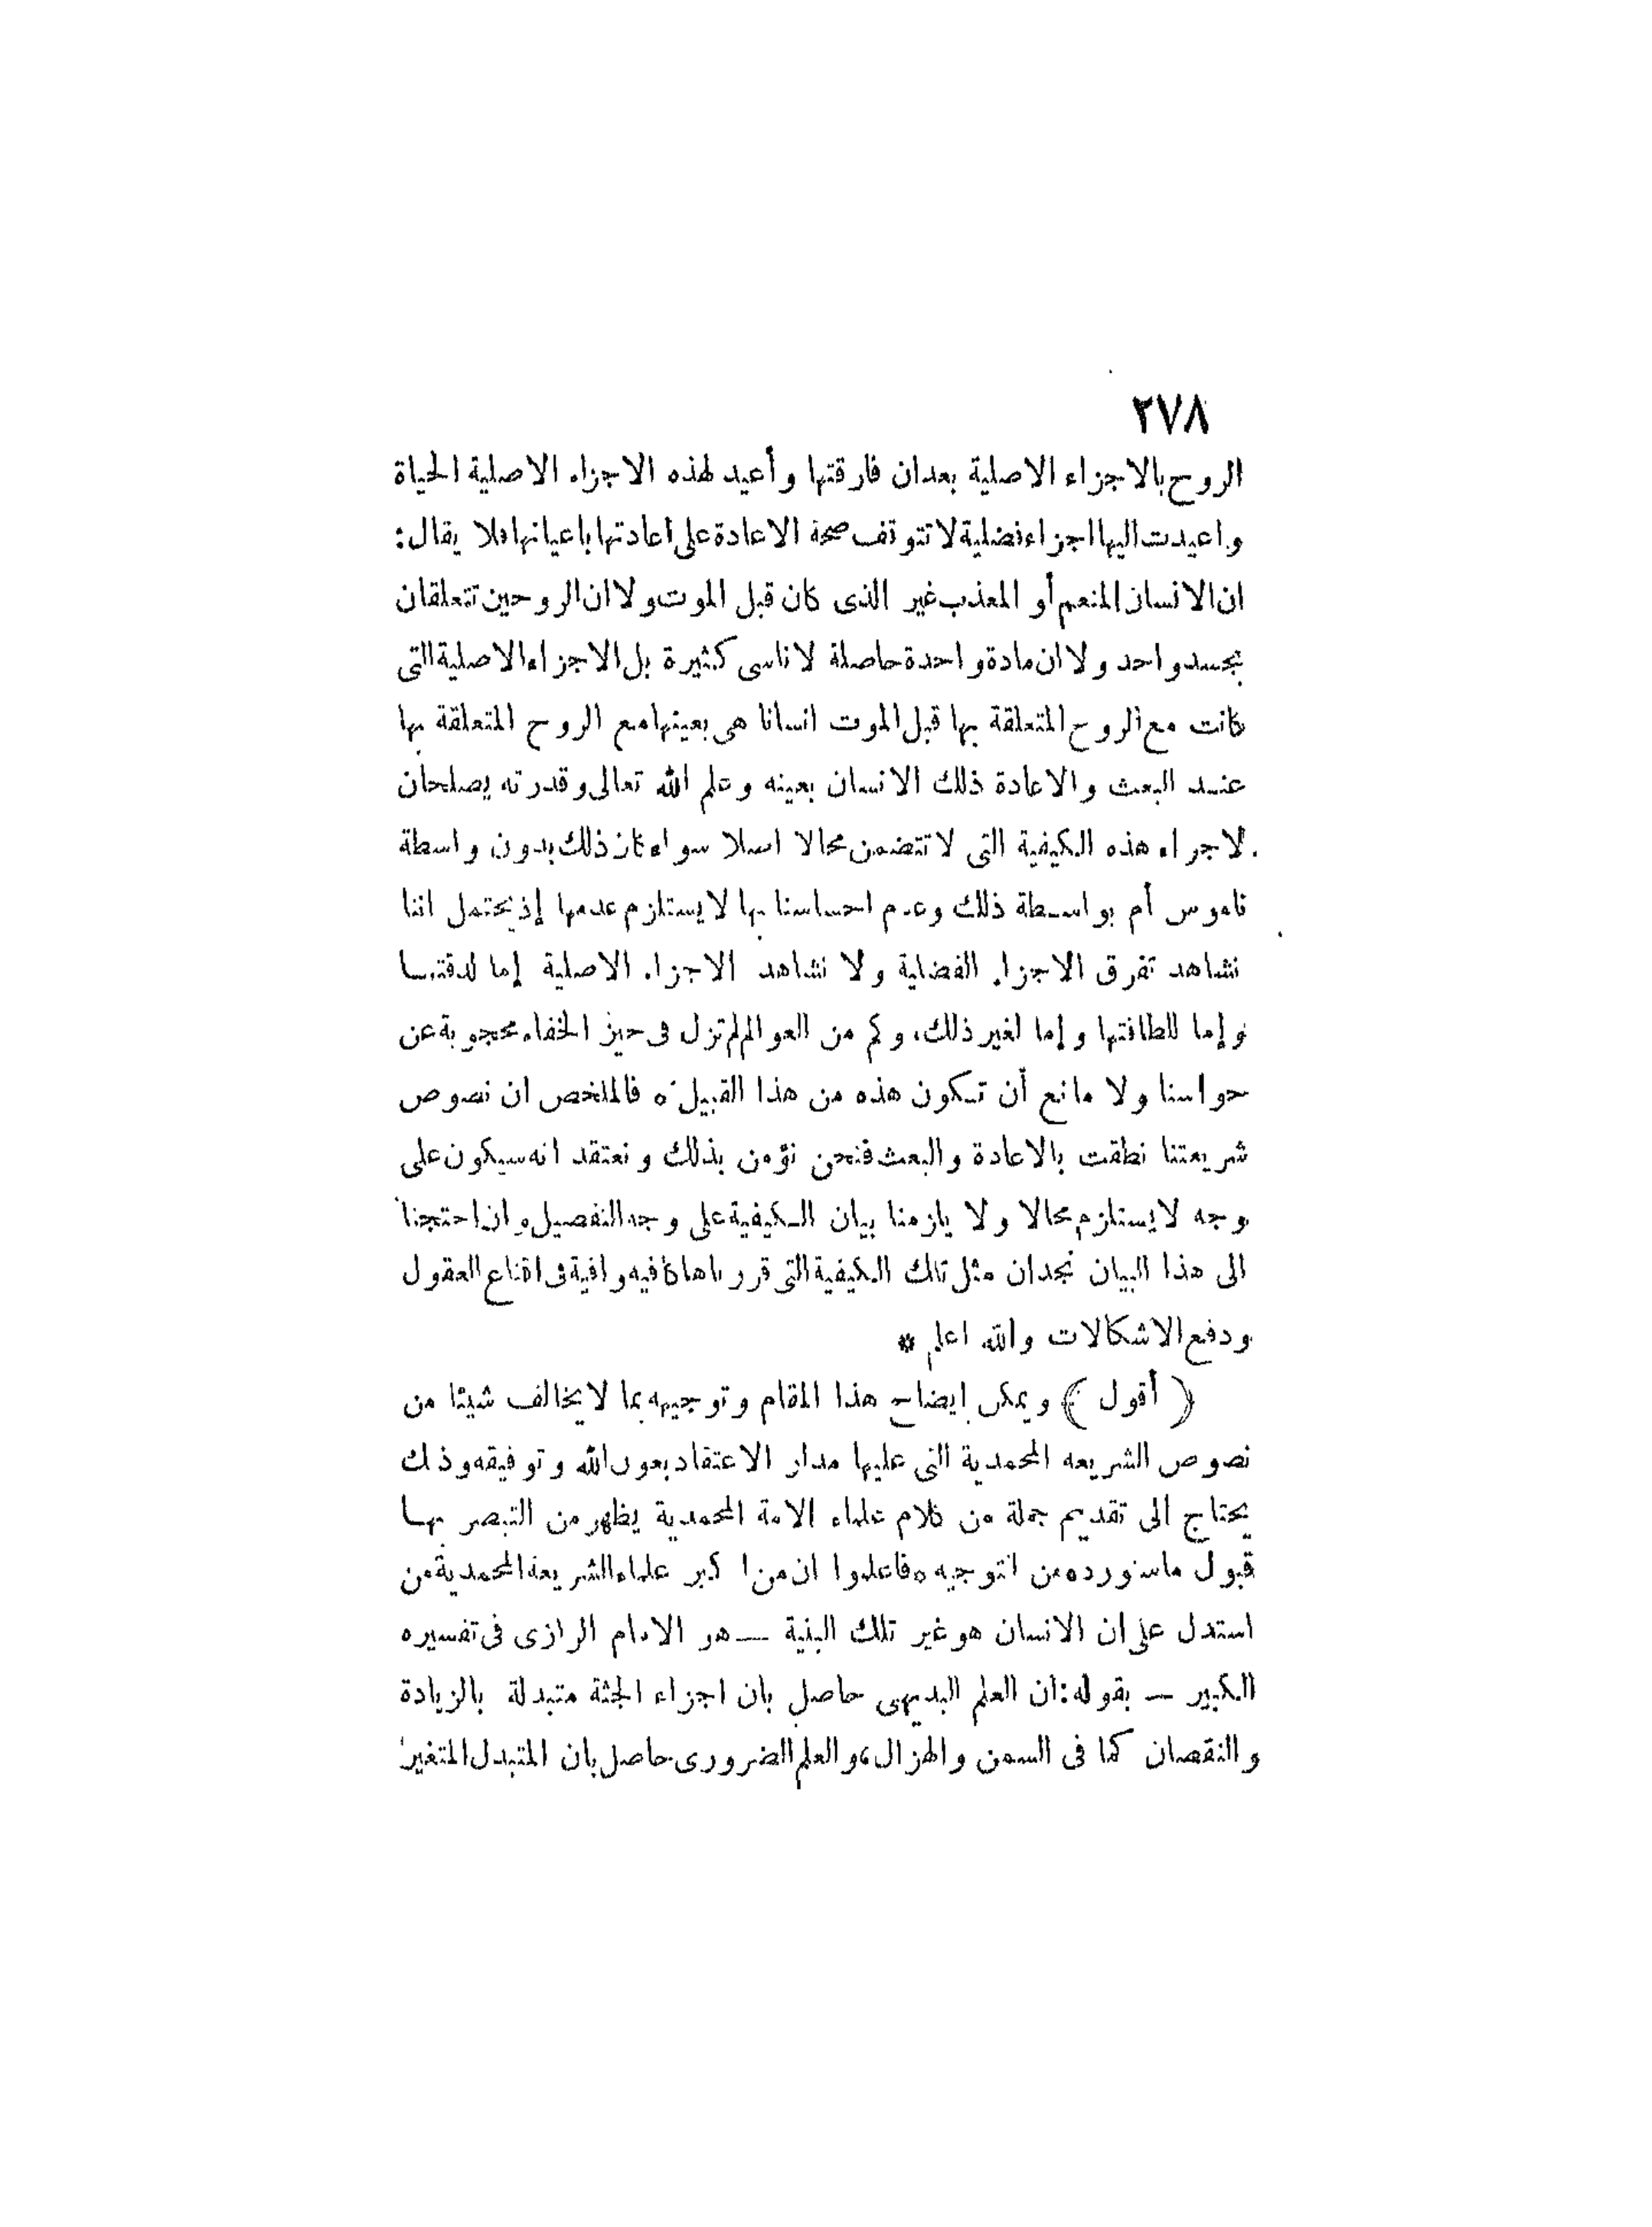 ٢٧٨
الروح بالاجزاء الاصلية بعد ان فارقتها وأعيد لهذه الاجزاء الاصلية الحياة
واعيدت اليها اجزاء فضلية لا تتوقف صحة الاعادة على اعادتها باعيانها فلا يقال:
ان الانسان المنعم أو المعذب غير الذى كان قبل الموت ولا ان الروحين تتعلقان
بجسد واحد ولا ان مادة واحدة حاصلة لاناسى كثيرة بل الاجزاء الاصلية التى
كانت مع الروح المتعلقة بها قبل الموت انسانا هى بعينها مع الروح المتعلقة بها
عند البعث والاعادة ذلك الانسان بعينه وعلم الله تعالى وقدرته يصلحان
لاجراء هذه الكيفية التى لا تتضمن محالا اصلا سواء كان ذلك بدون واسطة
ناموس أم بواسطة ذلك وعدم احساسنا بها لا يستلزم عدمها إذ يحتمل اننا
نشاهد تفرق الاجزاء الفضلية ولا نشاهد الاجزاء الاصلية إما لدقتها
وإما للطافتها وإما لغير ذلك، وكم من العوالم لم تزل فى حيز الخفاء محجوبة عن
حواسنا ولا مانع أن تكون هذه من هذا القبيل ه فالملخص ان نصوص
شريعتنا نطقت بالاعادة والبعث فنحن نؤمن بذلك ونعتقد انه سيكون على
وجه لا يستلزم محالا ولا يلزمنا بيان الكيفية على وجه التفصيل وان احتجنا
الى هذا البيان نجد ان مثل تلك الكيفية التى قررناها كافيه وافية فى اقناع العقول
ودفع الاشكالات والله اعلم *
﴿ أقول ﴾ ويمكن إيضاح هذا المقام وتوجيهه بما لا يخالف شيئا من
نصوص الشريعه المحمدية التى عليها مدار الاعتقاد بعون الله وتوفيقه وذلك
يحتاج الى تقديم جملة من كلام علماء الامة المحمدية يظهر من التبصر بهـا
قبول ما سنورده من التوجيه ه فاعلموا ان من اكبر علماء الشريعة المحمدية من
استدل على ان الانسان هو غير تلك البنية — هو الامام الرازى فى تفسيره
الكبير — بقوله: ان العلم البديهى حاصل بان اجزاء الجثة متبدلة بالزيادة
والنقصان كما فى السمن والهزال، والعلم الضرورى حاصل بان المتبدل المتغير